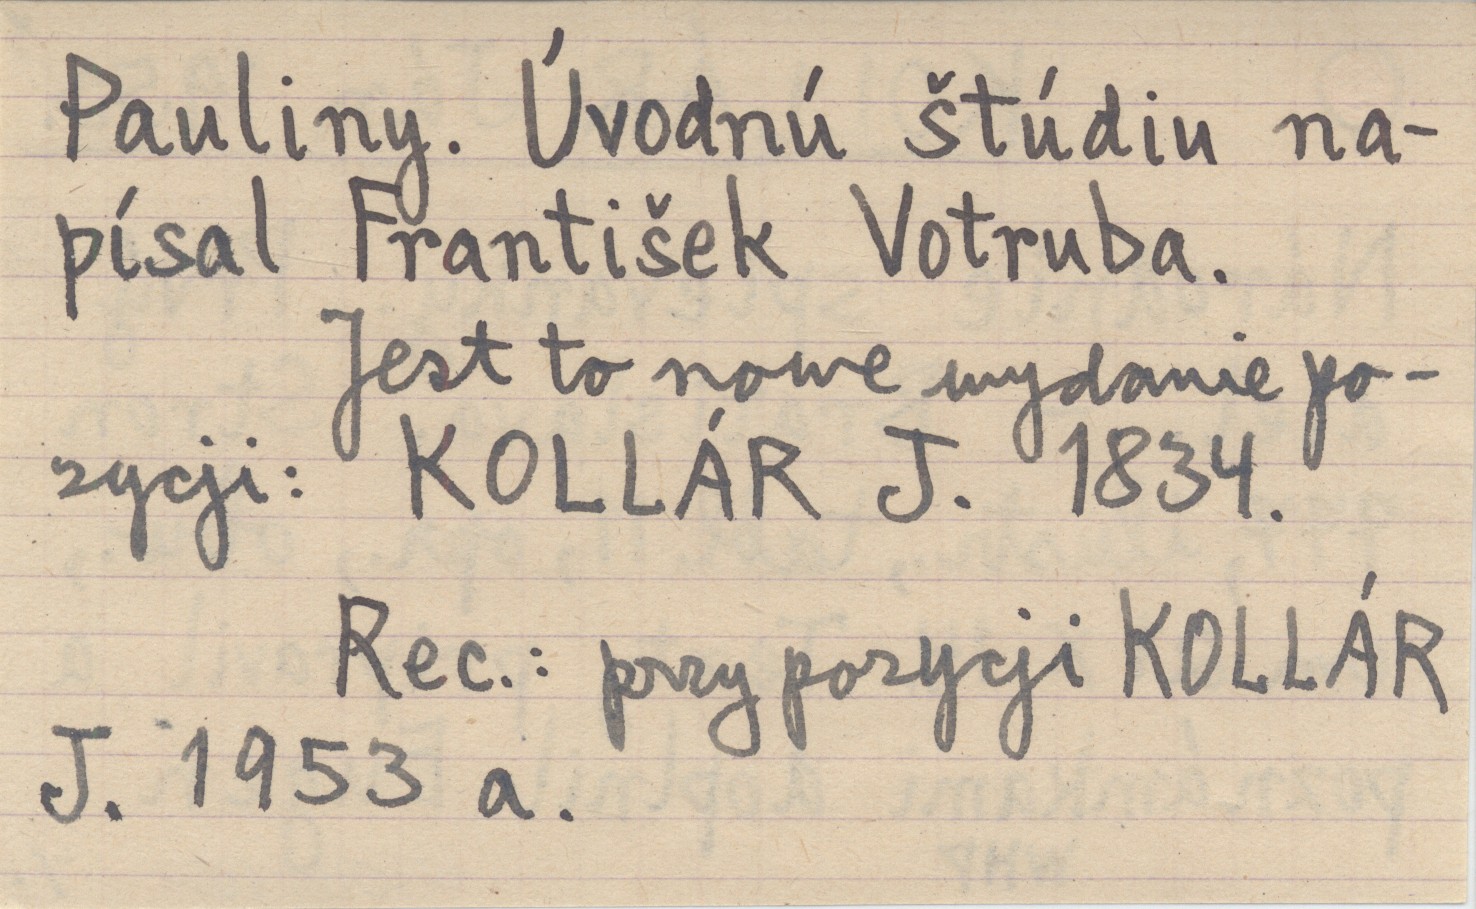 Pauliny. Úvodnú štúdiu na-
písal František Votruba.
Jest to nowe wydanie po-
zycji: KOLLÁR J. 1834.
Rec.: przy pozycji KOLLÁR
J. 1953 a.